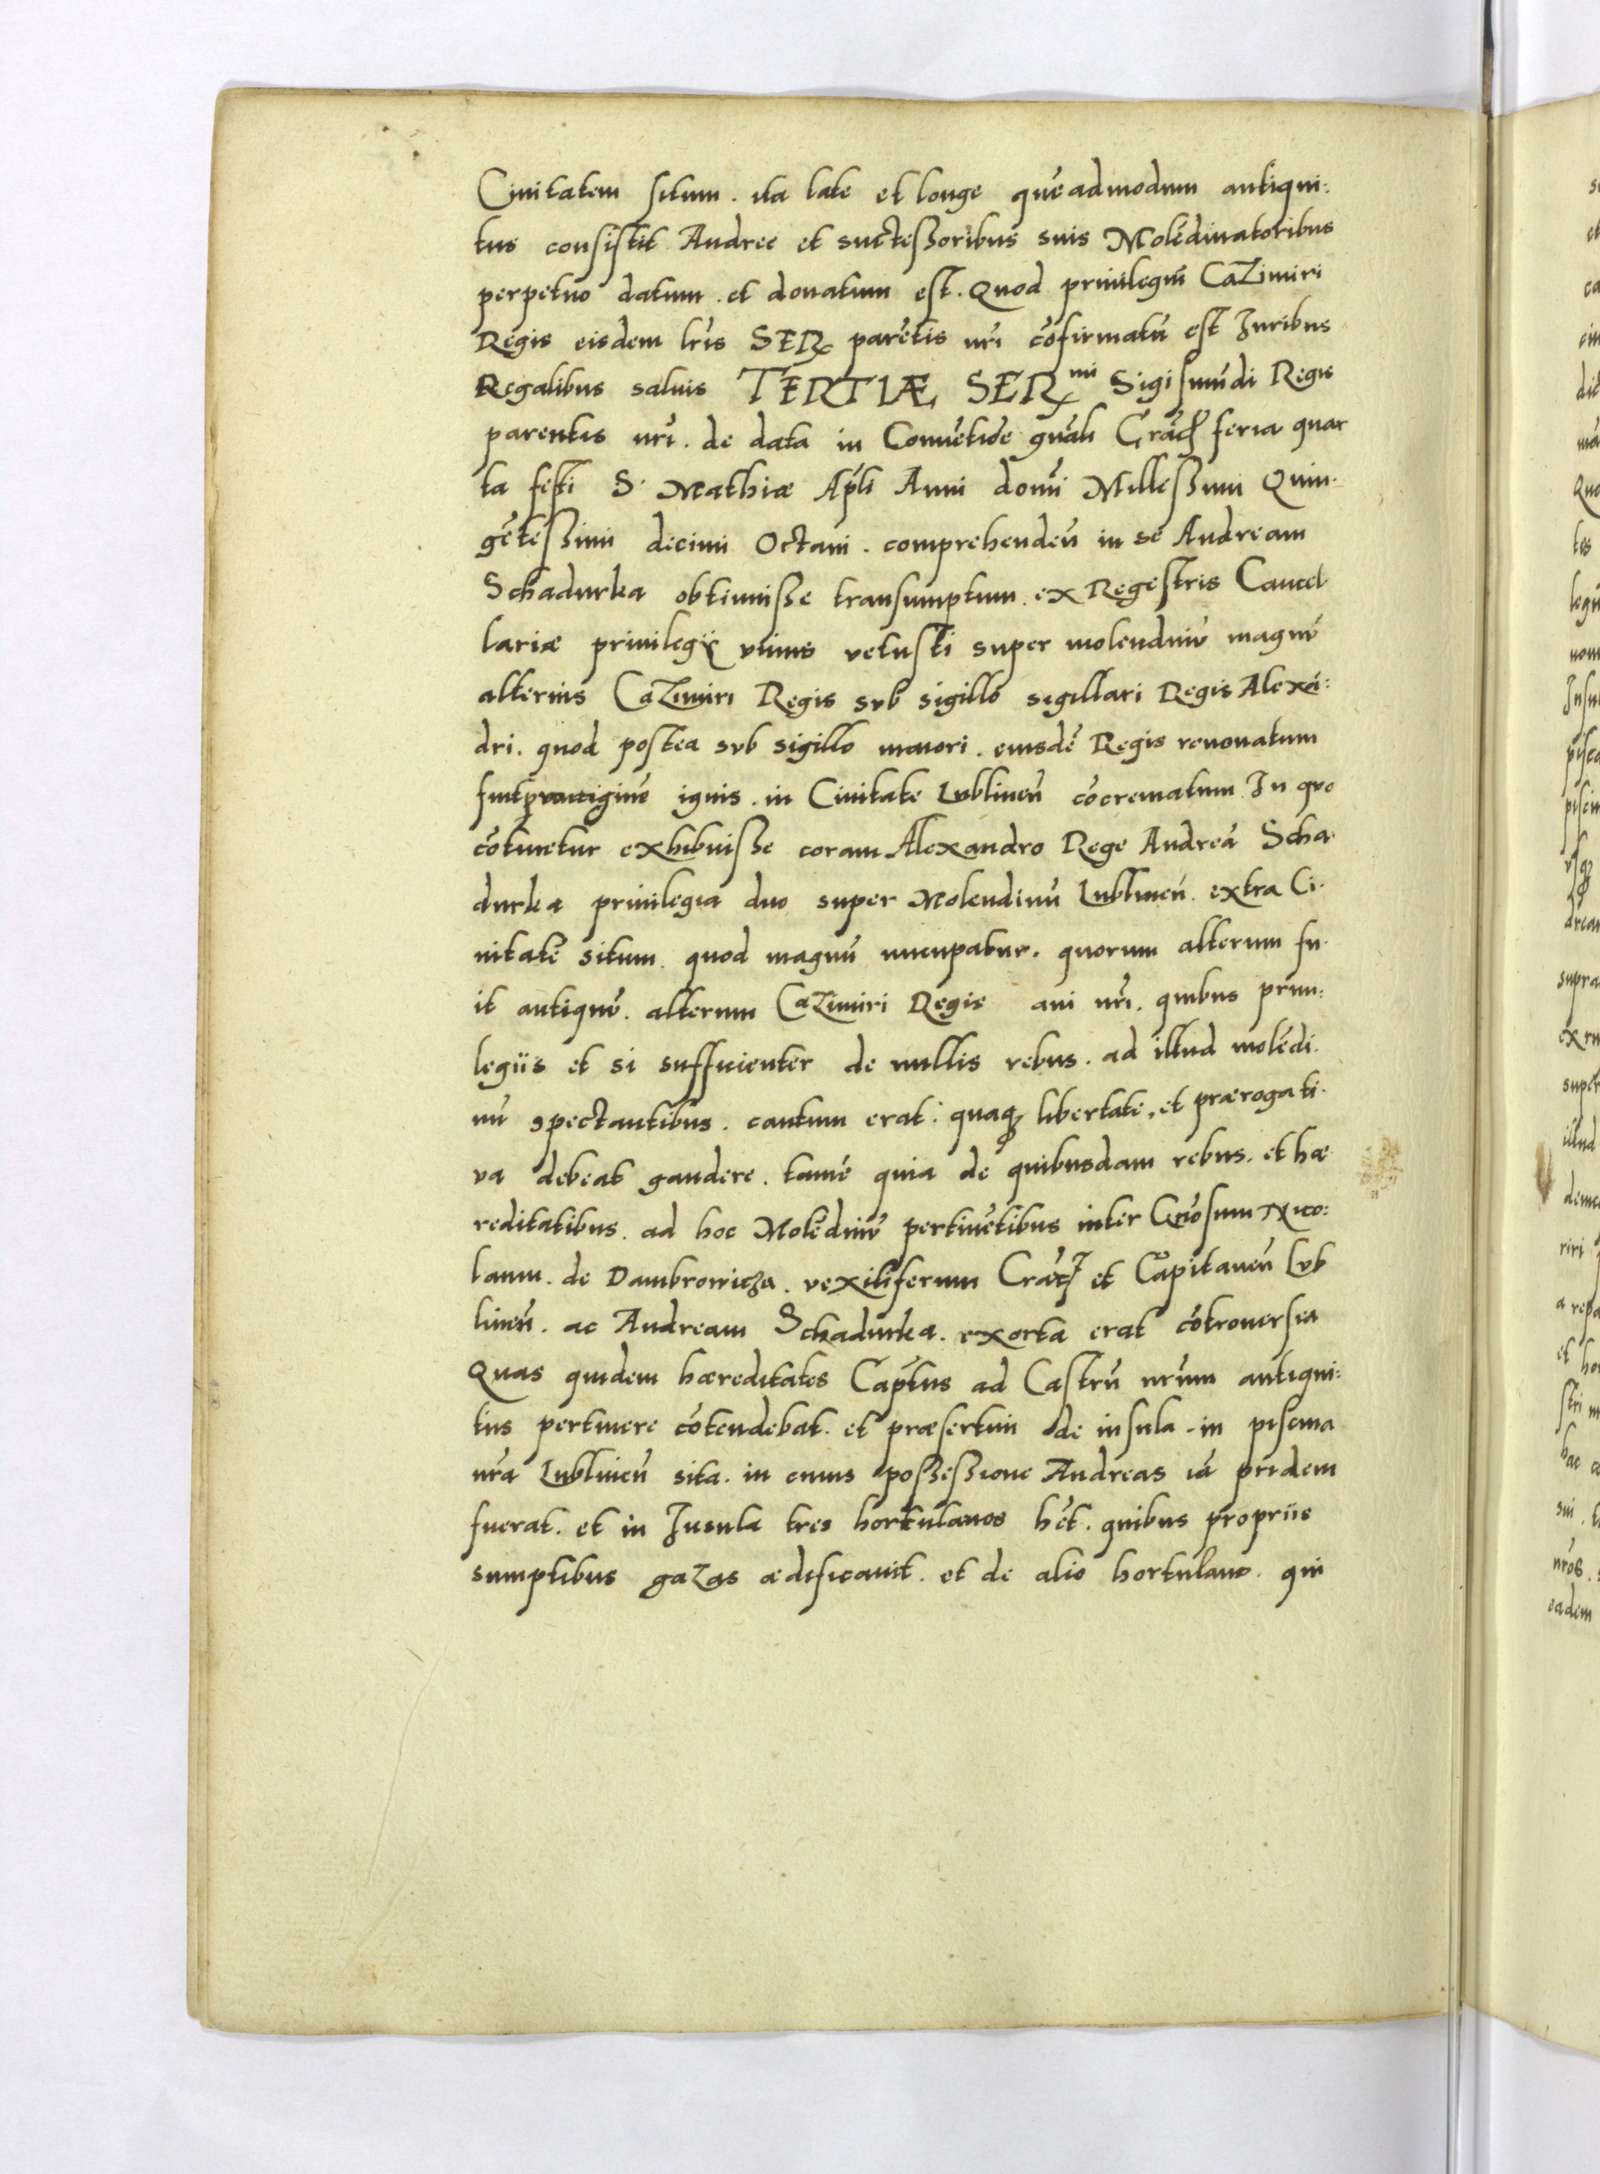 Ciuitatem situm. ita late et longe quēadmodum antiqui:
tus consistit Andree et successoribus suis Molēdinatoribus
perpetuo datum. et donatum est. Quod priuilegiū Cazimiri
Regis eisdem lris SER parētis nri cōfirmatū est Iuribus
Regalibus saluis TERTIÆ SER mi Sigismūdi Regis
parentis nri. de data in Conuētiōe gnāli Crac feria quar
ta festi S. Mathiæ Apli Anni domi Millessimi Quin.
gētessimi decimi Octaui. comprehendeñ in se Andream
Schadurka obtinuisse transumptum. ex Regestris Cancel.
lariæ priuilegij vnius vetusti super molendinū magnū
alterius Cazimiri Regis sub sigillo sigillari Regis Alexā:
dri. quod postea sub sigillo maiori. eiusdē Regis renouatum
fuit ignis. in Ciuitate Lublineñ cōcrematum In quo
cōtinetur exhibuisse coram Alexandro Rege Andreā Scha.
durka priuilegia duo super Molendinū Lublineñ. extra Ci.
uitatē situm. quod magnū nūcupatur. quorum alterum fu.
it antiquū. alterum Cazimiri Regis aui nri. quibus priui:
legiis et si sufficienter de nullis rebus. ad illud molēdi.
nū spectantibus. cautum erat. quaq libertate. et prærogati.
va debeat gaudere. tamē quia de quibusdam rebus. et hæ
reditatibus. ad hoc Molēdinū pertinētibus inter Gnōsum Nico:
laum. de Dambrowicza. vexiliferum Crac et Capitaneū Lub
lineñ. ac Andream Schadurka. exorta erat cōtrouersia
Quas quidem hæreditates Captus ad Castrū nrum antiqui:
tus pertinere cōtendebat. et præsertim de insula. in piscina
nra Lublineñ sita. in cuius possessione Andreas iā pridem
fuerat. et in Insula tres hortulanos hēt. quibus propriis
sumptibus gazas ædificauit. et de alio hortulano. qui